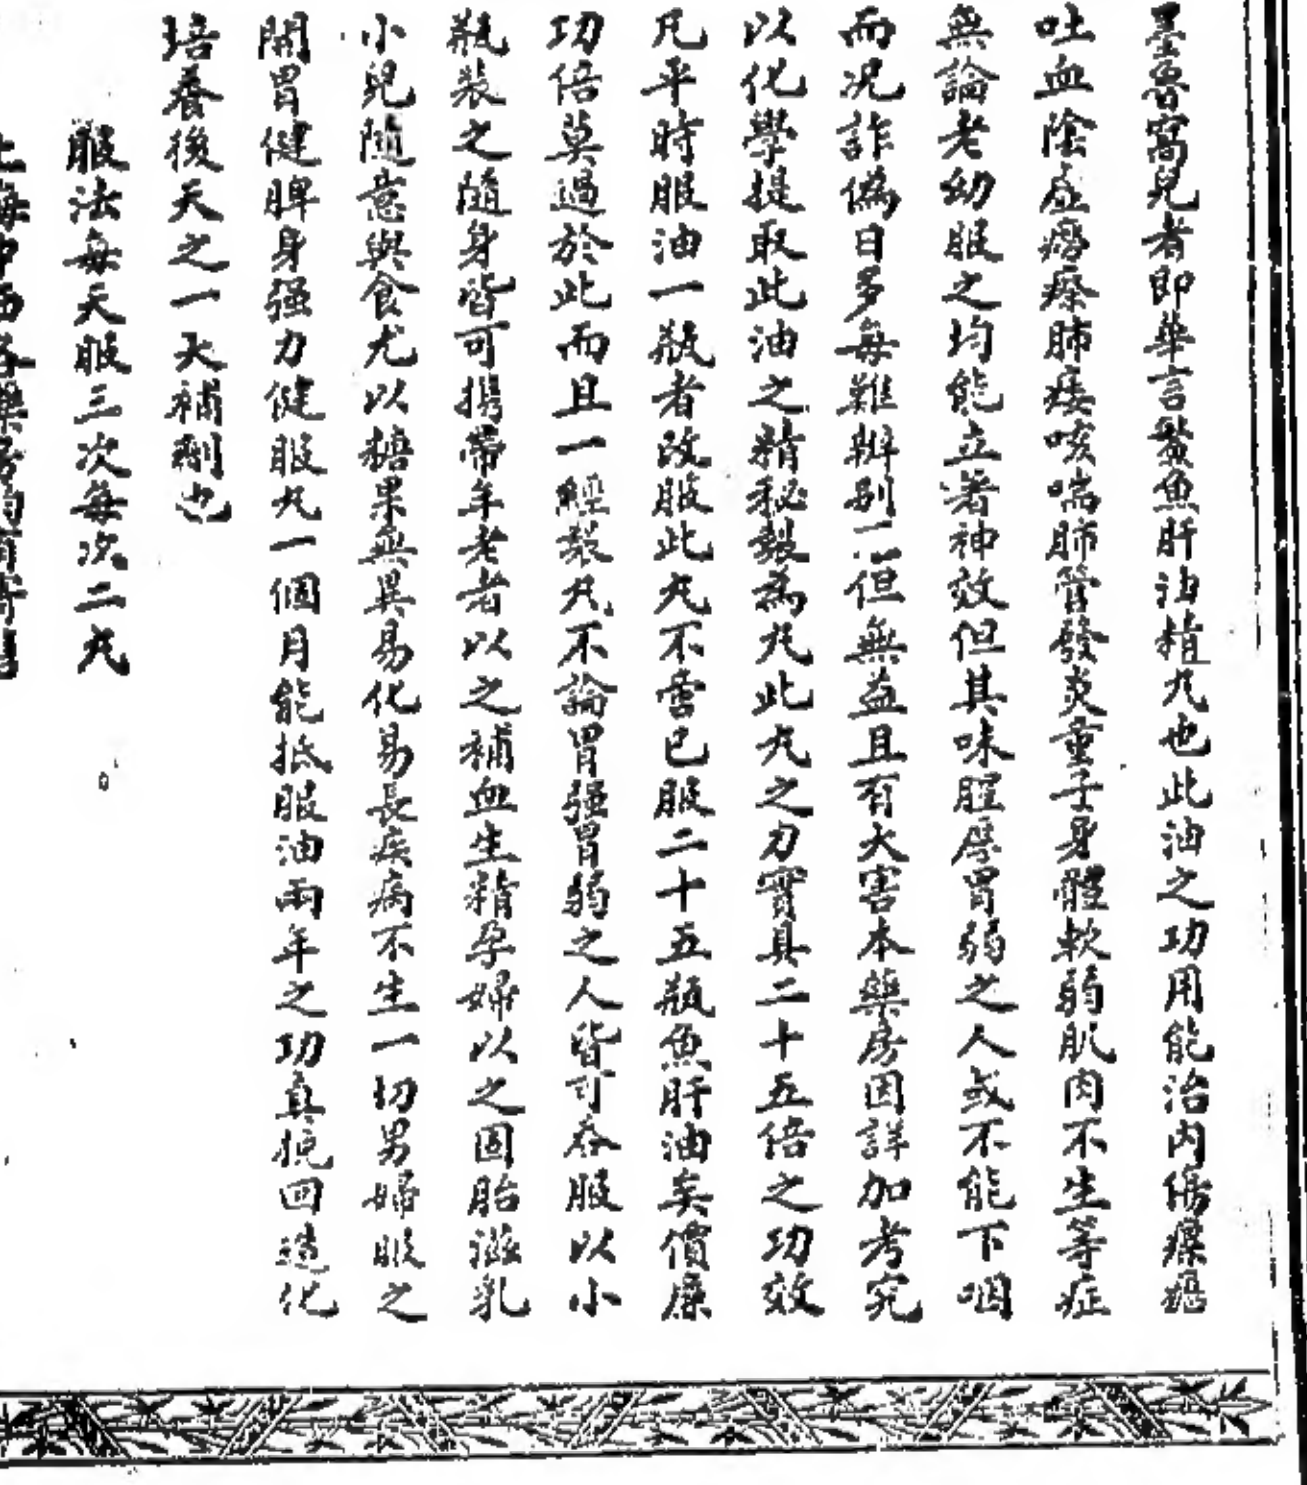 墨魯窩兒者即華言鰵魚肝油精丸也此油之功用能治內傷瘰癧
吐血陰虛癆瘵肺痿咳喘肺管發炎童子身體軟弱肌肉不生等症
無論老幼服之均能立著神效但其味腥厚胃弱之人或不能下咽
而况詐偽日多每難辦别不但無益且有大害本藥房因詳加考究
以化學提取此油之精秘製為丸此丸之力實具二十五倍之功效
凡平時服油一瓶者改服此丸不啻已服二十五瓶魚肝油矣價廉
功倍莫過於此而且一經製丸不論胃强胃弱之人皆可吞服以小
瓶装之隨身皆可携帶年老者以之補血生精孕婦以之固胎滋乳
小兒隨意與食尤以糖果無異易化易長疾病不生一切男婦服之
開胃健脾身强力健服丸一個月能抵服油兩年之功真挽回造化
培養後天之一大補劑也
服法每天服三次每次二丸
上海中西各藥房均有寄售